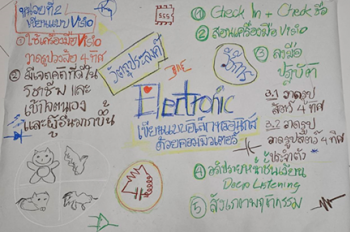 หน่วยที่ 2
เขียนแบบ Visio
① ใช้เครื่องมือ Visio
วาดรูปวงจร 4 ทิศ
② มีเจตคติที่ดีใน
วิชาชีพ และ
เข้าใจตนเอง
และผู้อื่นมากขึ้น
วัตถุประสงค์
Electronic
เขียนแบบอิเล็กทรอนิกส์
ด้วยคอมพิวเตอร์
วิธีการ
① Check In + Check ชื่อ
② สอนเครื่องมือ Visio
③ ลงมือ
ปฏิบัติ
3.1 วาดรูป
สัตว์ 4 ทิศ
3.2 วาดรูป
วาดรูปสัตว์ 4 ทิศ
ประจำตัว
④ อภิปรายหน้าชั้นเรียน
Deep Listening
⑤ สังเกตพฤติกรรม